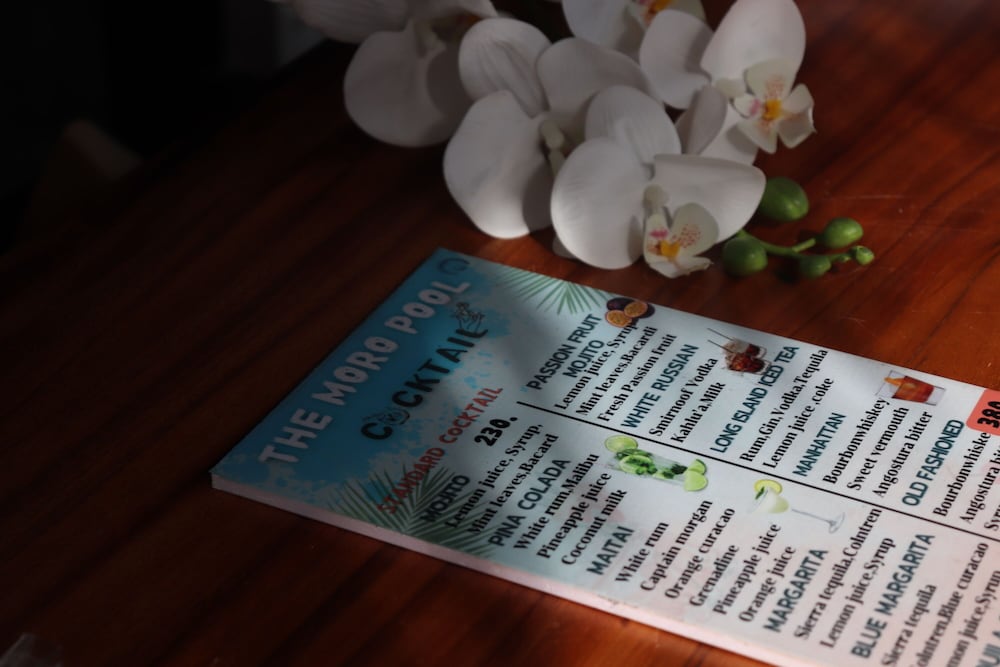 THE MORO POOL
COCKTAIL
STANDARD COCKTAIL
230.
MOJITO
Lemon juice, Syrup,
Mint leaves.Bacard
PINA COLADA
White rum,Malibu
Pineapple juice
Coconut milk
MAITAI
White rum
Captain morgan
Orange curacao
Grenadine
Pineapple juice
Orange juice
MARGARITA
Sierra tequila.Colntren
Lemon juice.Syrup
BLUE MARGARITA
Sierra tequila
Colntren.Blue curacao
juice.Syrup
PASSION FRUIT
MOJITO
Lemon juice, Syrup
Mint leaves.Bacardi
Fresh Passion fruit
WHITE RUSSIAN
Smirnoof Vodka
Kahlu'a.Milk
LONG ISLAND ICED TEA
Rum,Gin.Vodka,Tequila
Lemon juice.coke
MANHATTAN
Bourbonwhiskey
Sweet vermouth
Angostura bitter
OLD FASHIONED
Bourbonwhiske
Angostura bi
380